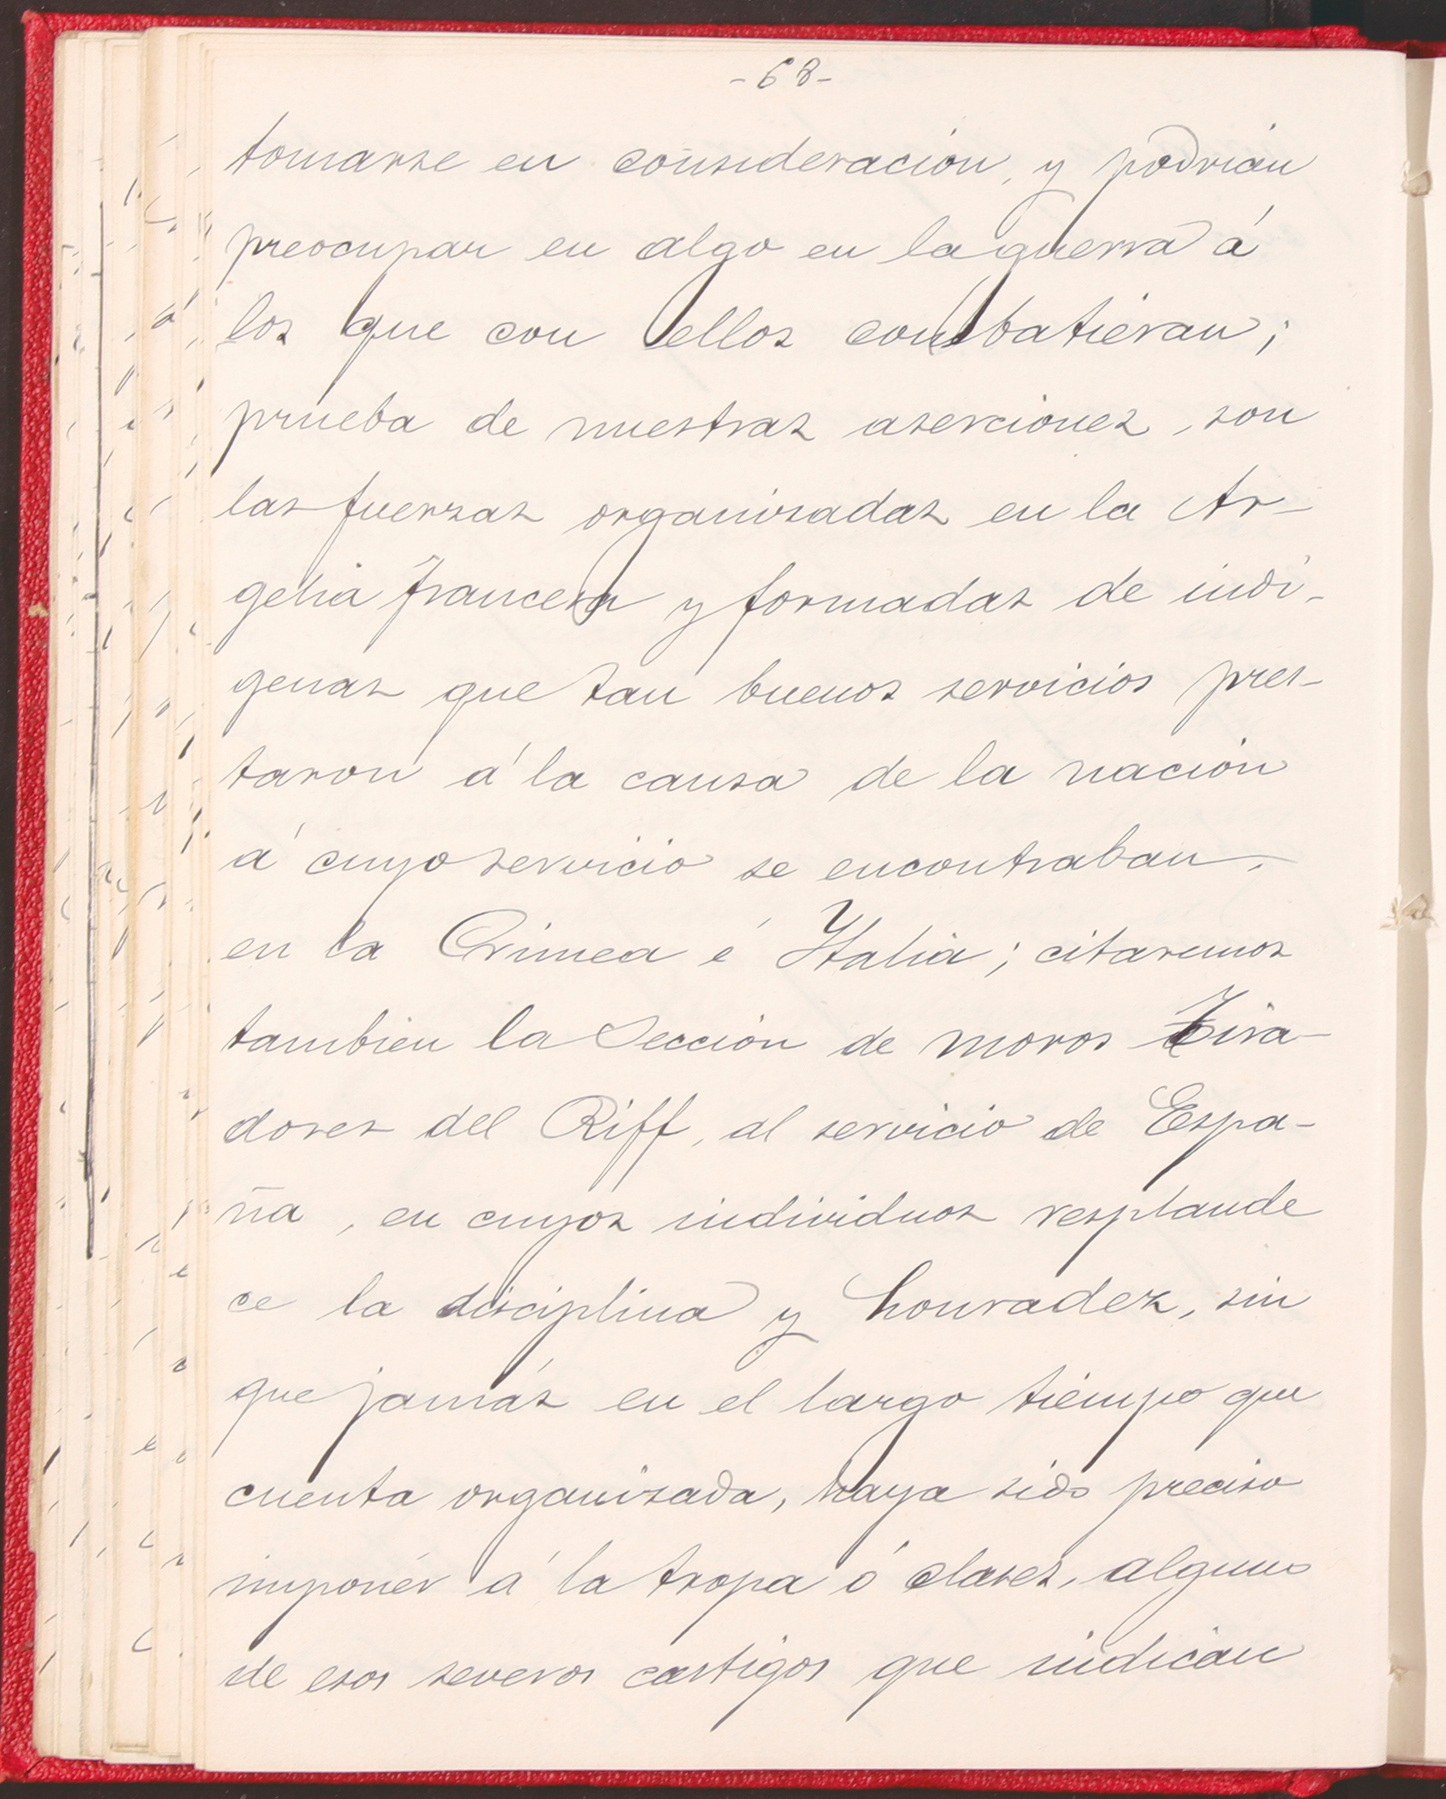 -68-
tomarse en consideración, y podrián
preocupar en algo en la guerra á
los que con ellos combatieran;
prueba de nuestras aserciones, son
las fuerzas organizadas en la Ar-
gelia francesa y formadas de indi-
genas que tan buenos servicios pres-
taron á la causa de la nación
á cuyo servicio se encontraban,
en la Crimea é Ytalia; citaremos
tambien la Sección de moros Tira-
dores del Riff, al servicio de Espa-
ña, en cuyos individuos resplande
ce la disciplina y honradez, sin
que jamás en el largo tiempo que
cuenta organizada, haya sido preciso
imponér á la tropa ó clases, alguno
de esos severos castigos que indican